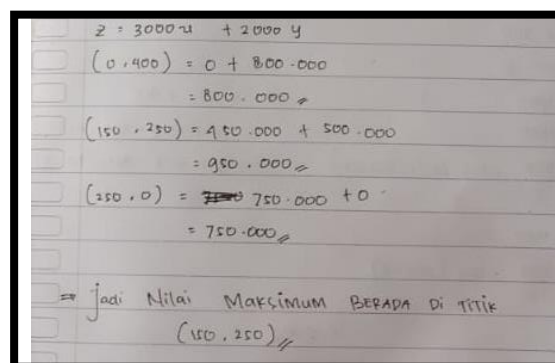 z = 3000x + 2000y
(0,400) = 0 + 800.000
= 800.000
(150, 250) = 450.000 + 500.000
= 950.000
(250,0) = 750.000 + 0
= 750.000
⇒ Jadi Nilai Maksimum BERADA Di TiTiK
(150, 250)